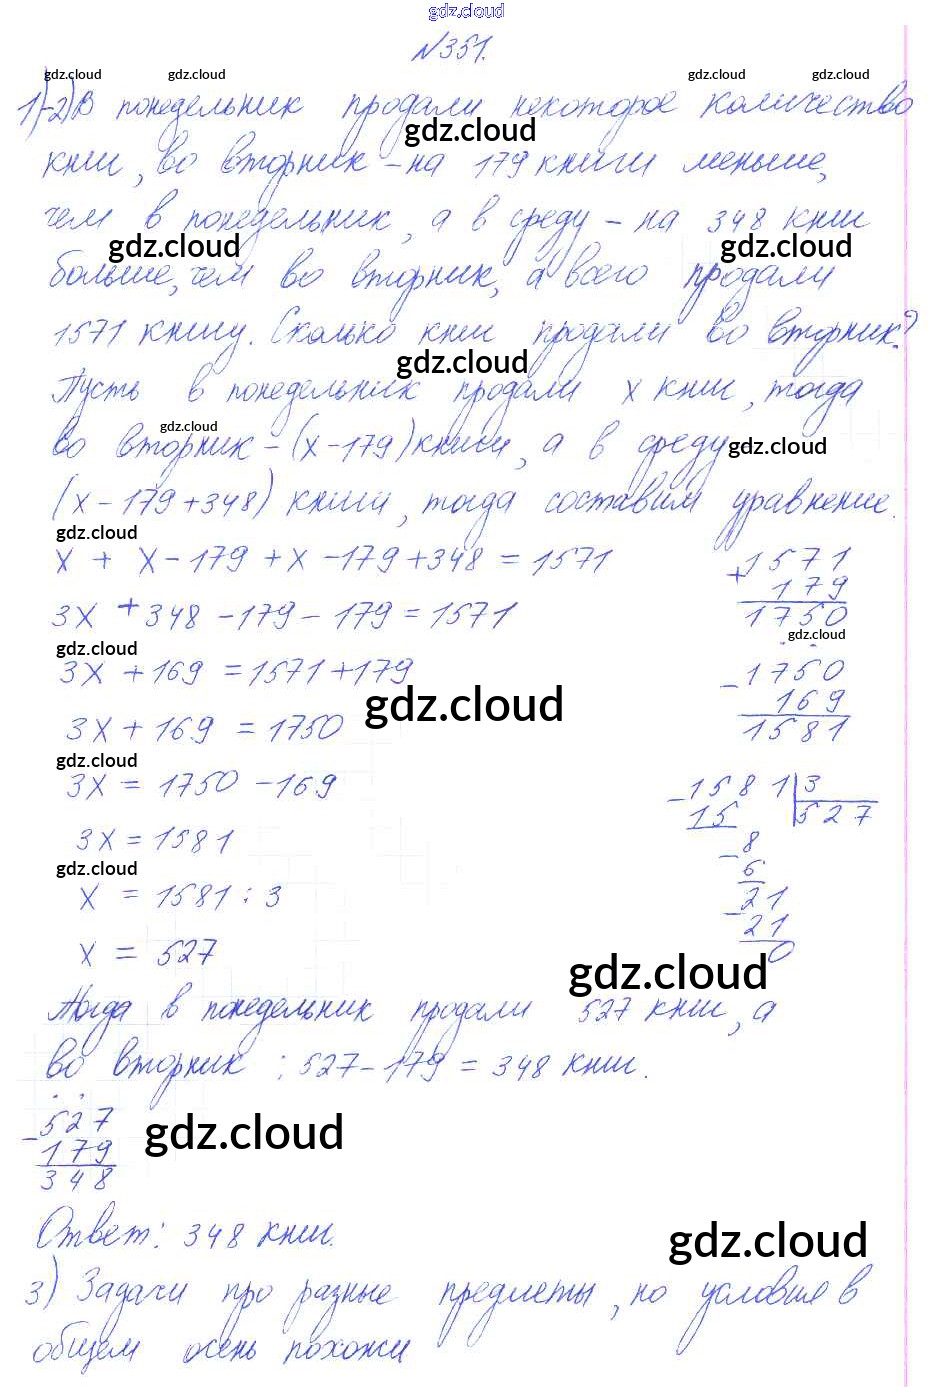 gdz.cloud
№351.
gdz.cloud gdz.cloud gdz.cloud gdz.cloud
1)-2) В понедельник продали некоторое количество
gdz.cloud
книг, во вторник - на 179 книги меньше,
чем в понедельник, а в среду - на 348 книг
gdz.cloud gdz.cloud
больше, чем во вторник, а всего продали
1571 книгу. Сколько книг продали во вторник?
gdz.cloud
Пусть в понедельник продали x книг, тогда
gdz.cloud
во вторник - (x - 179) книги, а в среду -
gdz.cloud
(x - 179 + 348) книги, тогда составим уравнение.
gdz.cloud
x + x - 179 + x - 179 + 348 = 1571
3x + 348 - 179 - 179 = 1571
gdz.cloud
3x + 169 = 1571 + 179
3x + 169 = 1750
gdz.cloud
3x = 1750 - 169
3x = 1581
gdz.cloud
x = 1581 : 3
x = 527
+ 1571
179
1750
gdz.cloud
- 1750
169
1581
gdz.cloud
- 1581 | 3
15 527
- 8
6
- 21
21
0
gdz.cloud
Тогда в понедельник продали 527 книг, а
во вторник : 527 - 179 = 348 книг.
- 527
179
348
gdz.cloud
Ответ: 348 книг.
gdz.cloud
3) Задачи про разные предметы, но условия в
общем осень похожи